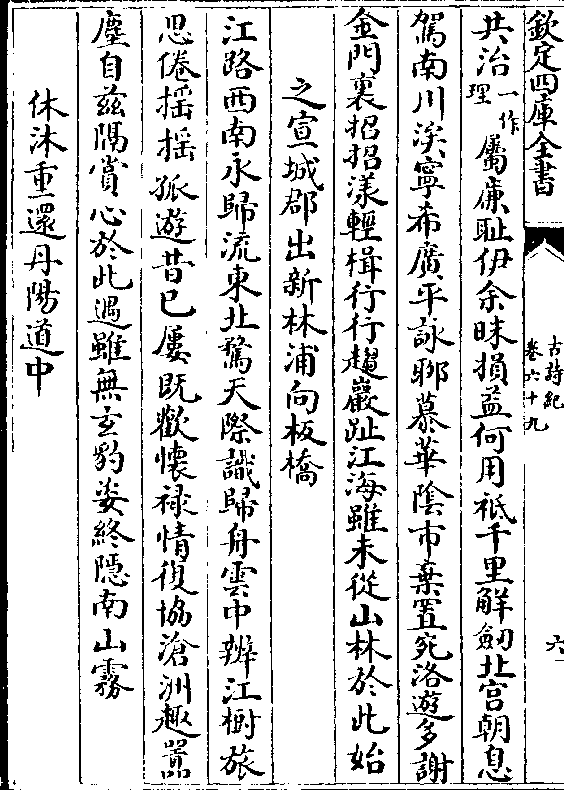 欽定四庫全書
古詩紀
卷六十九
六
共治一作理屬廉恥伊余昧損益何用祗千里解劒北宫朝息
駕南川涘寧希廣平詠聊慕華陰市棄置宛洛遊多謝
金門裏招招漾輕楫行行趨巖趾江海雖未從山林於此始
之宣城郡出新林浦向板橋
江路西南永歸流東北騖天際識歸舟雲中辨江樹旅
思倦揺揺孤遊昔已屢既歡懷禄情復協滄洲趣囂
塵自兹隔賞心於此遇雖無玄豹姿終隱南山霧
休沐重還丹陽道中